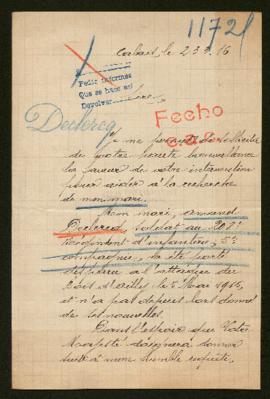 11721
Corbais, le 23.8.16
Pedir informes
Que se haga asi
Devolver
Declercq
Fecho
Je me permets de solliciter
de votre haute bienveillance
la faveur de votre intervention
pour aider à la recherche
de mon mari.
Mon mari, Armand
Declercq, soldat au 208e
Régiment d'infanterie, 5e
compagnie, a été porté
disparu à l'attaque du
bois d'Ailly, le 5 Mai 1915,
et n'a pas depuis lors donné
de ses nouvelles.
Dans l'espoir que Votre
Majesté daignera donner
suite à mon humble requête,